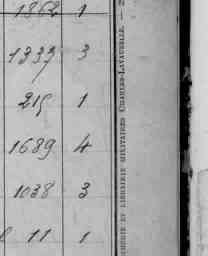 1862 1
1337 3
215 1
1689 4
1038 3
11 1
IMPRIMERIE ET LIBRAIRIE MILITAIRES CHARLES-LAVAUZELLE. —